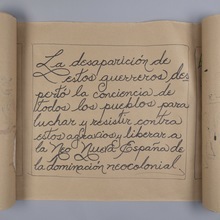 La desaparición de
estos guerreros des
pertó la conciencia de
todos los pueblos para
luchar y resistir contra
estos agravios y liberar a
la Neo Nueva España de
la dominación neocolonial.